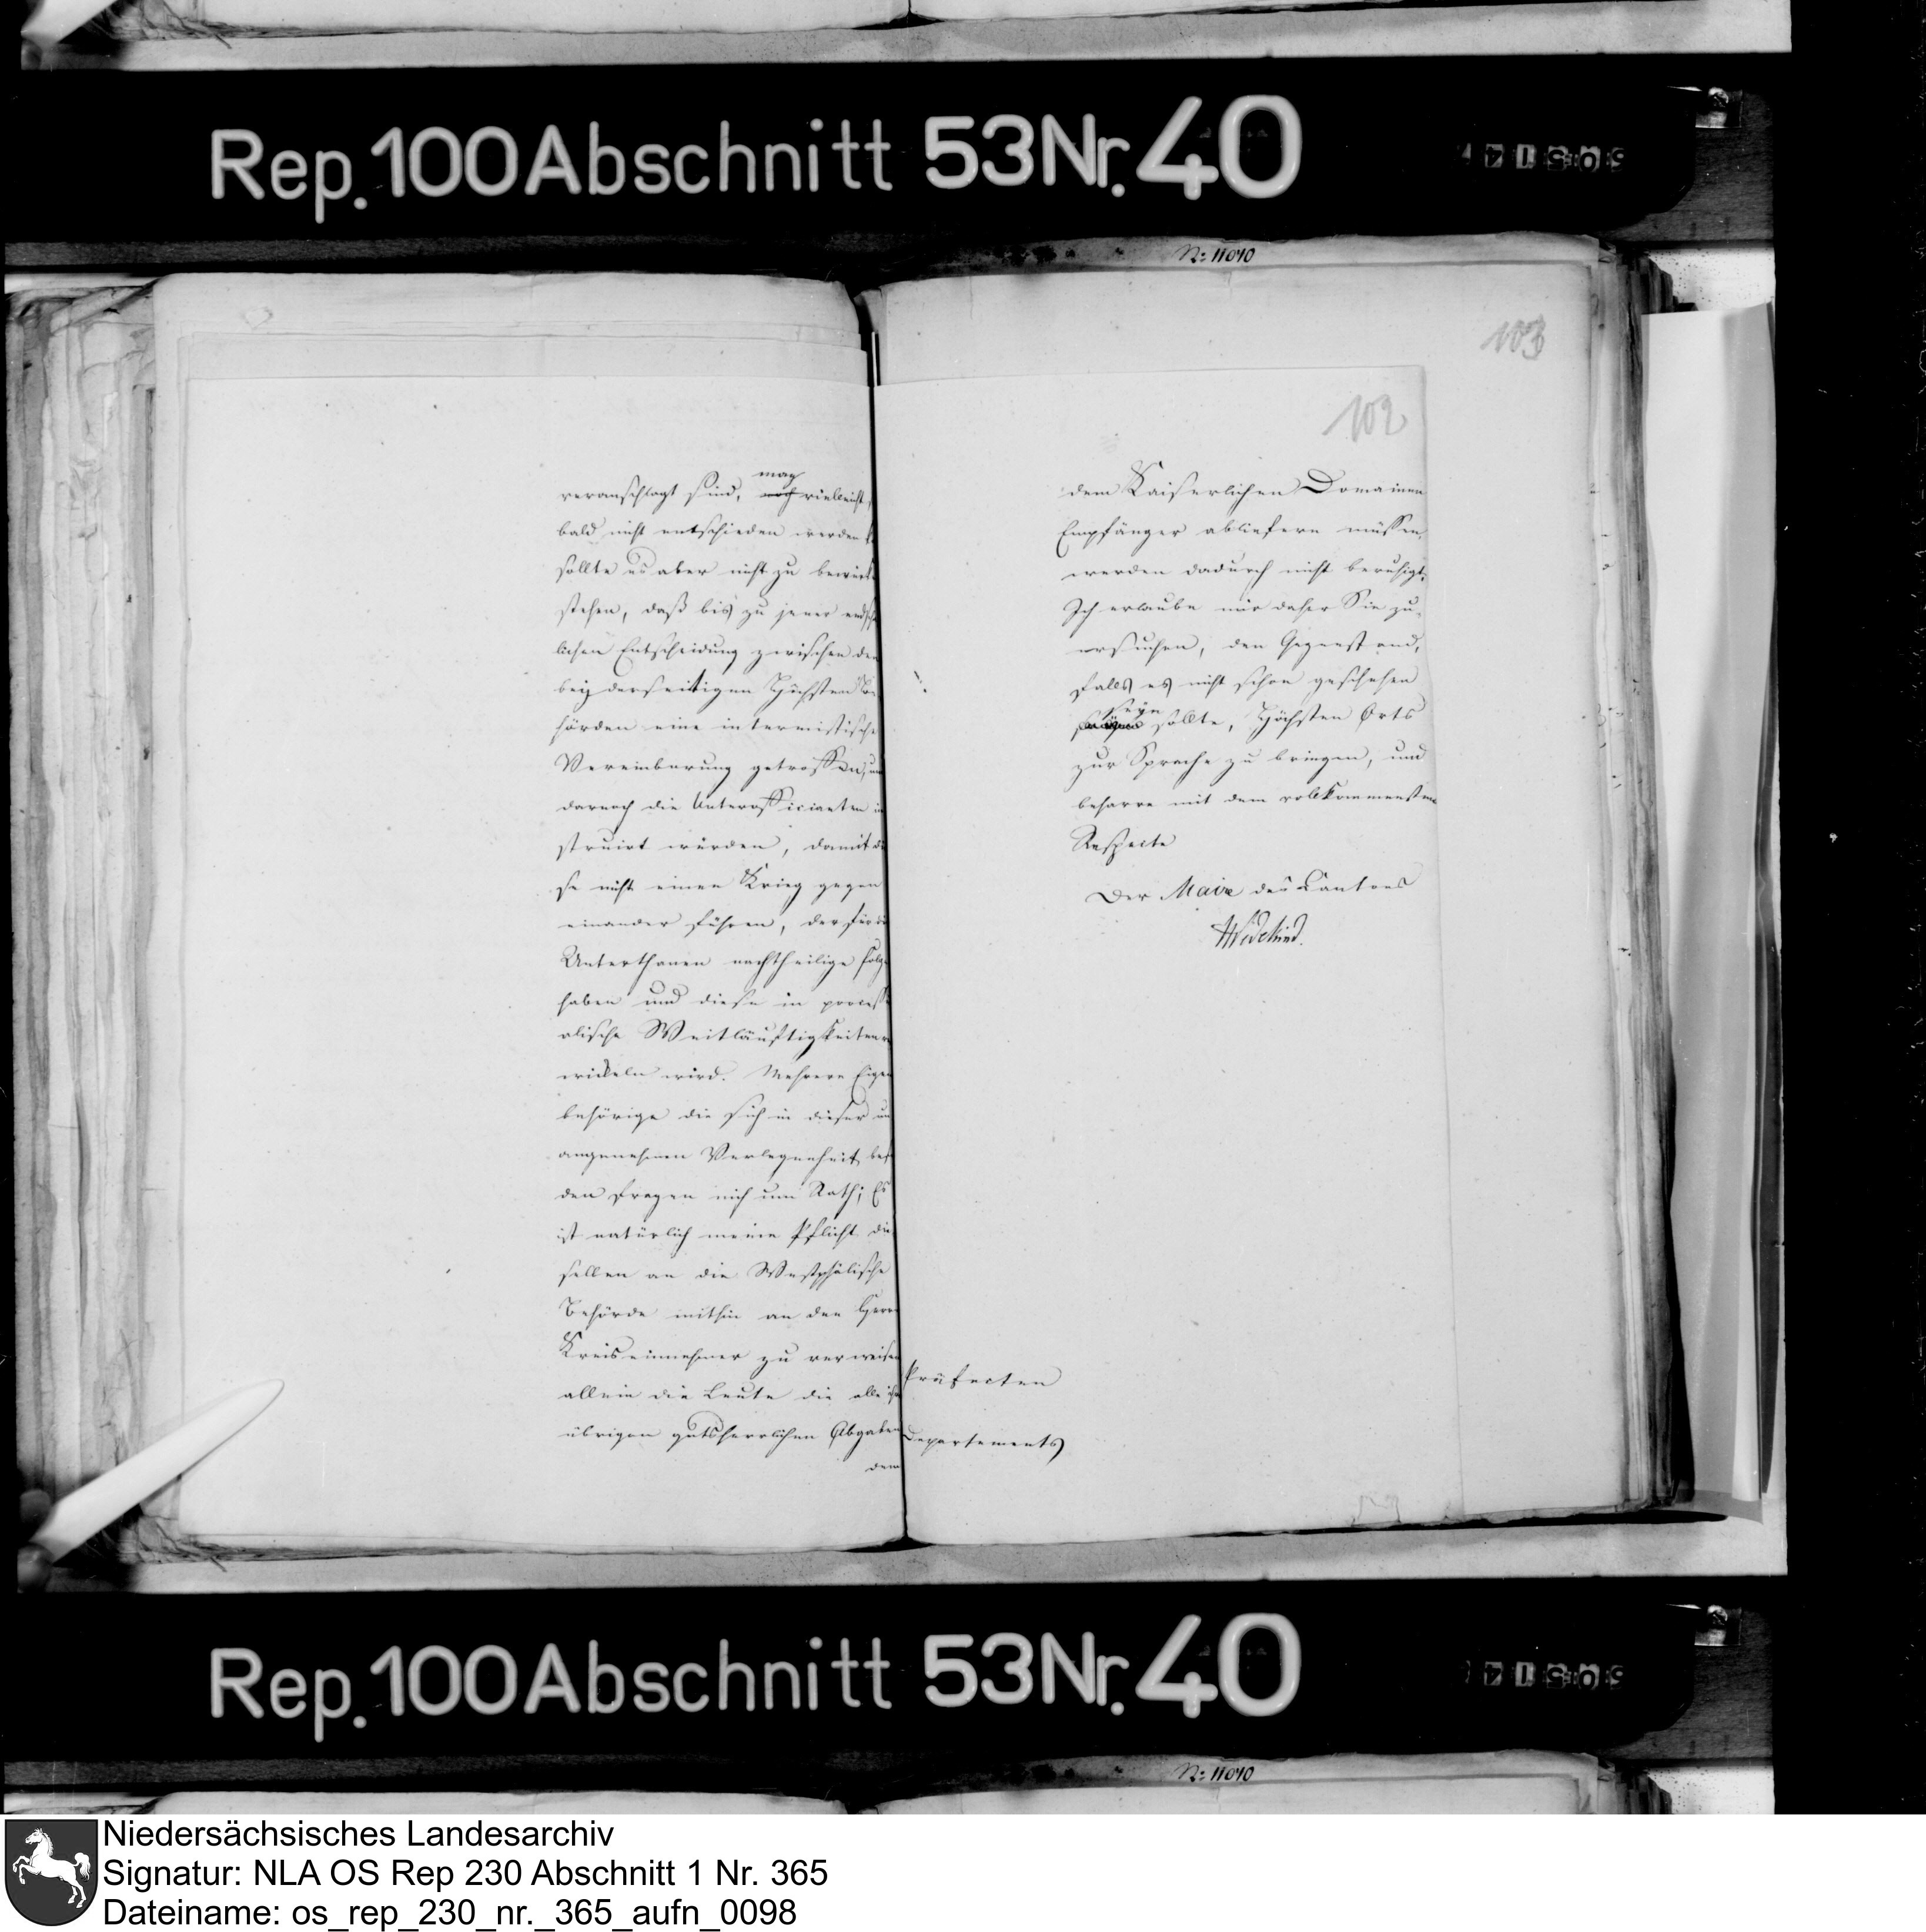 Rep. 100 Abschnitt 53 Nr. 40
N: 11040
103
102
veranschlagt sind, mag noch vielleicht
bald nicht entschieden werden
sollte es aber nicht zu bewürk
stehen, daß bis zu jener endsch
lichen Entscheidung zwischen den
beyderseitigen Höchsten Be
hörden eine intermistische
Vereinbarung getroffen, und
darnach die Unterofficianten in
struirt würden, damit di
se nicht einen Krieg gegen
einander führen, der für di
Unterthanen nachtheilige Folge
haben und diese in process
alische Weitläuftigkeiten ver
wickeln wird. Mehrere Eigen
behörige die sich in dieser un
angenehmen Verlegenheit befi
den fragen mich um Rath; Es
ist natürlich meine Pflicht die
selben an die Westphälische
Behörde mithin an den Herrn
Kreiseinnehmer zu verweisen
allein die Leute die alle ihre
übrigen gutsherrlichen Abgaben
dem
Präfecten
Departements
dem Kaiserlichen Domainen
Empfänger abliefern müssen,
werden dadurch nicht beruhigt,
Ich erlaube mir daher Sie zu
ersuchen, den Gegenstand,
falls es nicht schon geschehen
seyn sollte, Höchsten Orts
zur Sprache zu bringen, und
beharre mit dem vollkommensten
Respecte
Der Maire des Cantons
Wedekind.
Rep. 100 Abschnitt 53 Nr. 40
N: 11040
Niedersächsisches Landesarchiv
Signatur: NLA OS Rep 230 Abschnitt 1 Nr. 365
Dateiname: os_rep_230_nr._365_aufn_0098